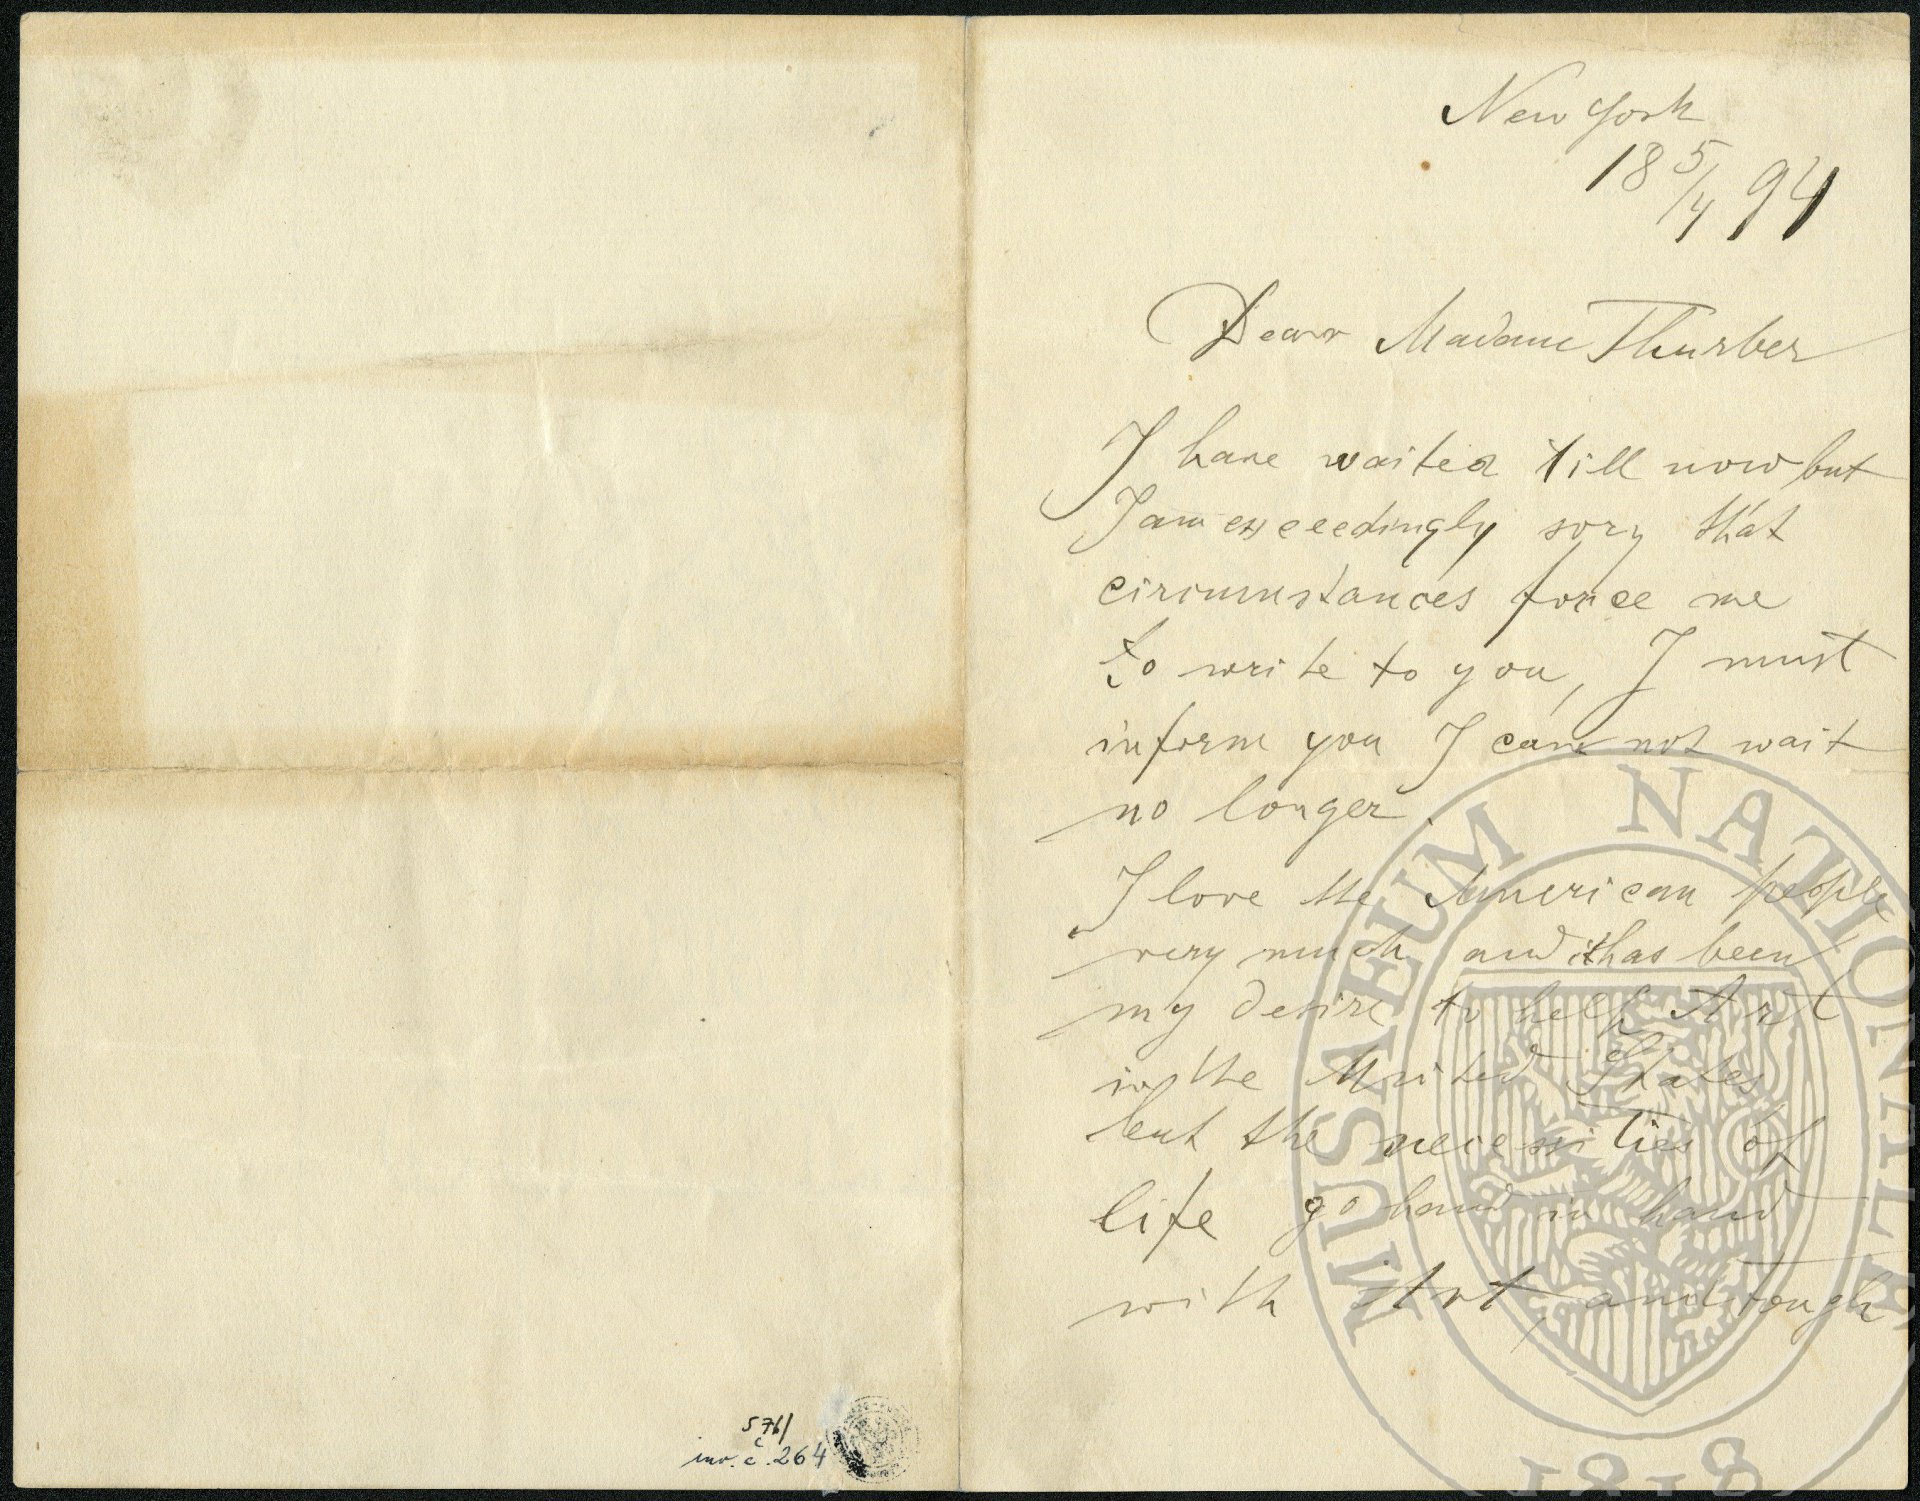 New York
18 5/4 94
Dear Madame Thurber
I have waited till now but
I am exceedingly sory that
cirimumstances force me
to write to you, I must
inform you I can not wait
no longer.
I love the American people
very much and it has been
my desire to help Art
in the United States
but the necessities of
life go hand in hand
with Art, and tough
576/
inv. č. 264
MUSAEUM NATIONALE
1818